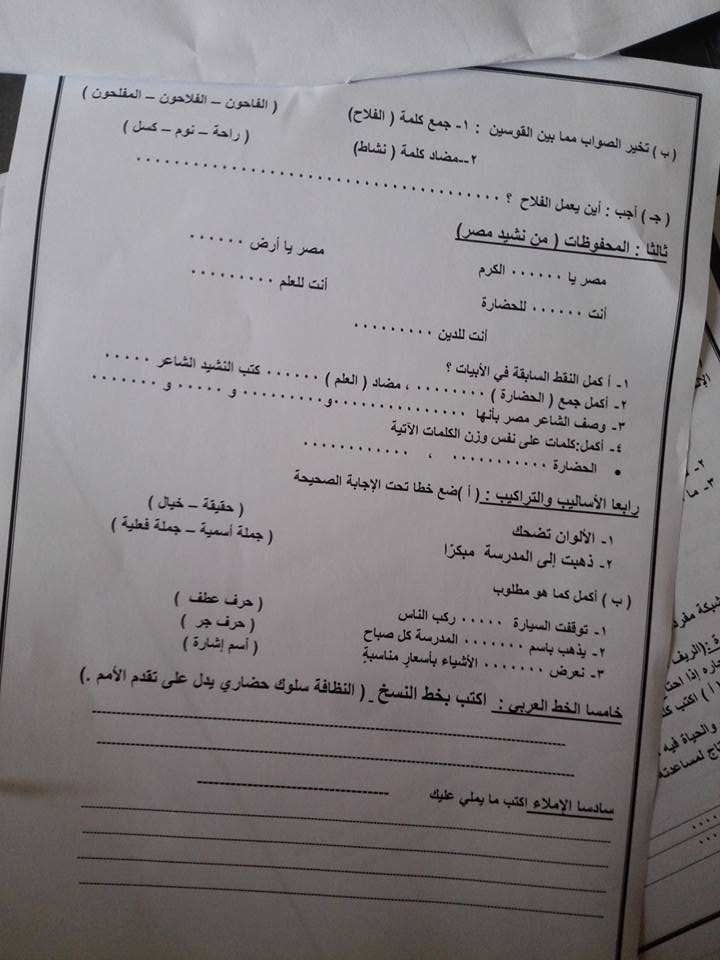 ( ب ) تخير الصواب مما بين القوسين : ١- جمع كلمة ( الفلاح) ( الفاحون – الفلاحون – المفلحون )
٢--مضاد كلمة ( نشاط) ( راحة – نوم – كسل )
( جـ ) أجب : أين يعمل الفلاح ؟ ......................................
ثالثا : المحفوظات ( من نشيد مصر)
مصر يا ...... الكرم مصر يا أرض ......
أنت ...... للحضارة أنت للعلم .........
أنت للدين .........
١- أ كمل النقط السابقة في الأبيات ؟
٢- أكمل جمع ( الحضارة ) ......... ، مضاد ( العلم ) ...... كتب النشيد الشاعر .....
٣- وصف الشاعر مصر بأنها ...............و.......... و ..... و .......
٤- أكمل:كلمات على نفس وزن الكلمات الآتية
• الحضارة ........... ، ............
رابعا الأساليب والتراكيب : ( أ )ضع خطا تحت الإجابة الصحيحة
١- الألوان تضحك ( حقيقة – خيال )
٢- ذهبت إلى المدرسة مبكرًا ( جملة أسمية – جملة فعلية )
( ب ) أكمل كما هو مطلوب
١- توقفت السيارة ..... ركب الناس ( حرف عطف )
٢- يذهب باسم ....... المدرسة كل صباح ( حرف جر )
٣- نعرض ....... الأشياء بأسعارٍ مناسبةٍ ( أسم إشارة )
خامسا الخط العربي : اكتب بخط النسخ - ( النظافة سلوك حضاري يدل على تقدم الأمم .)
سادسا الإملاء اكتب ما يملي عليك